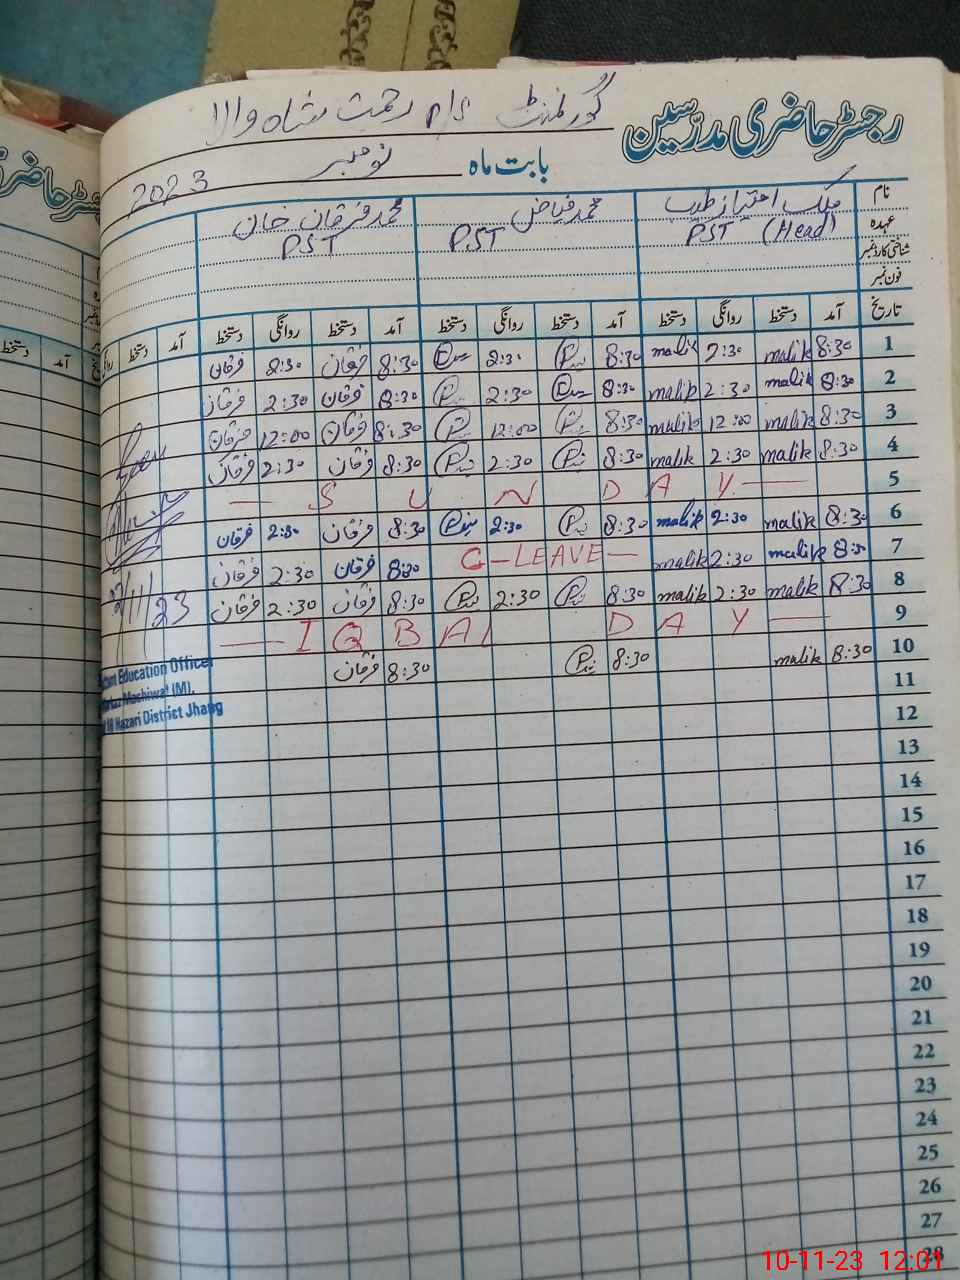 رجسٹر حاضری مدرّسین گورنمنٹ p/s رحمت شاہ والا
بابت ماہ نومبر 2023
نام ملک امتیاز طیب محمد فیاض محمد فرقان خان
عہدہ PST (Head) PST PST
شناختی کارڈ نمبر
فون نمبر
تاریخ آمد دستخط روانگی دستخط آمد دستخط روانگی دستخط آمد دستخط روانگی دستخط آمد دستخط
1 8:30 malik 2:30 malik 8:30 2:30 8:30 فرقان 2:30 فرقان
2 8:30 malik 2:30 malik 8:30 2:30 8:30 فرقان 2:30 فرقان
3 8:30 malik 12:00 malik 8:30 12:00 8:30 فرقان 12:00 فرقان
4 8:30 malik 2:30 malik 8:30 2:30 8:30 فرقان 2:30 فرقان
5 — S U N D A Y —
6 8:30 malik 2:30 malik 8:30 2:30 8:30 فرقان 2:30 فرقان
7 8:30 malik 2:30 malik C-LEAVE— 8:30 فرقان 2:30 فرقان
8 8:30 malik 2:30 malik 8:30 2:30 8:30 فرقان 2:30 فرقان
9 — I Q B A L D A Y —
10 8:30 malik 8:30 8:30 فرقان
11
12
13
14
15
16
17
18
19
20
21
22
23
24
25
26
27
28
/11/23
Education Officer
Machiwal (M),
Hazari District Jhang
10-11-23 12:01